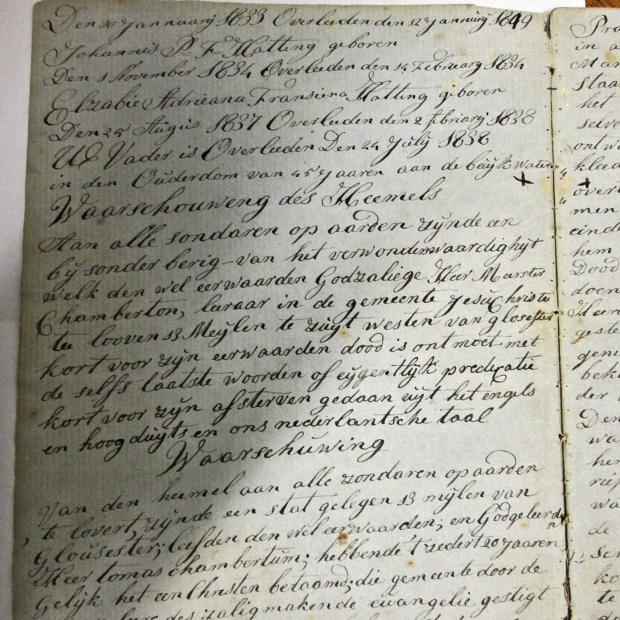 Den 30 Jannuarij 1833 Overleeden den 12 Januarij 1849
Johannis P. F. Hatting geboren
Den 1 November 1834 Overleeden den 14 Februarij 1834
Elzabie Adrieana Fransiena Hatting geboren
Den 25 Augis 1837 Overleeden den 2 februarij 1838
UE Vader is Overleeden Den 24 Julij 1838
in den Ouderdom van 45 Jaaren aan de
Waarschouweng des Heemels
Aan alle sondaren op aarden zynde een
bij sonder berig van het verwonderwaardighyt
welk den wel eerwaarden Godzalige Heer Meester
Chamberton, leeraar in de gemeente Jesu Christe
te looven 13 Meylen te zuyt westen van glosester
kort voor zyn eerwaarden dood is ontmoet met
de selfs laatste woorden of eygentlyk predicatie
kort voor zyn afsterven gedaan uyt het engels
en hoog duyts en ons nederlantsche taal
Waarschuwing
Van den heemel aan alle zondaren op aarden
te lovert, zynde een stat gelegen 13 mylen van
Glousester; leefden den wel eerwaarden; en Godgeleerden
Heer tomas chambertum; hebbende 't zedert 20 jaaren
Gelyk het een Christen betaamd, die gemeente door de
des zaligmakende evangelie gestigt
Pra
in a
Mar
Staa
het
selve
ontw
klee
over
men
einde
hem
Dood
doen
Heere
geste
geme
beke
der
Den
wa
hem
wa
de
ko